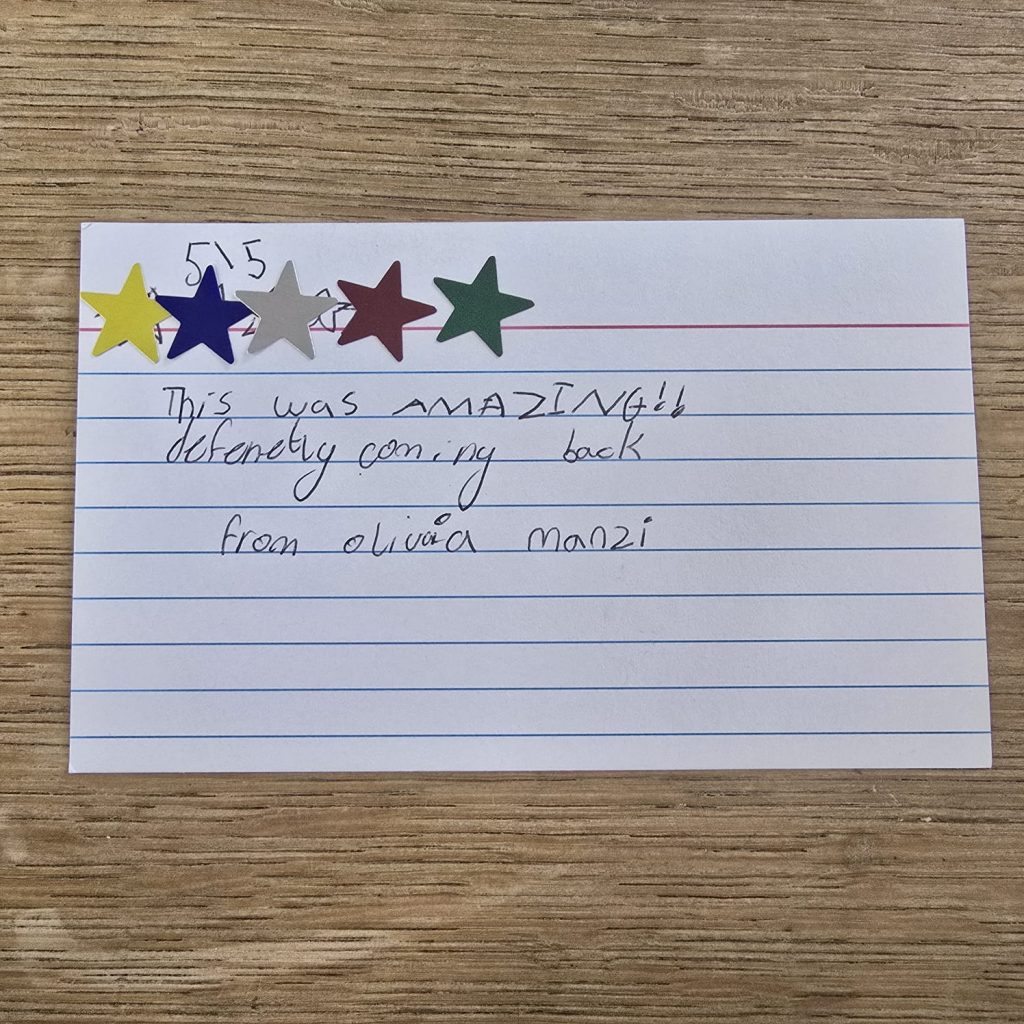 5\5
This was AMAZING!!
defenetly coming back
from olivia manzi